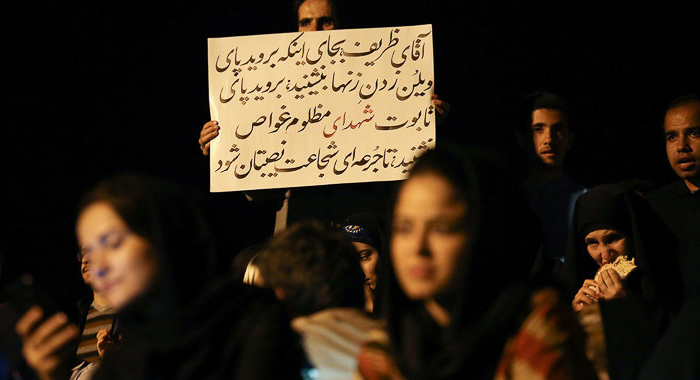 آقای ظریف، بجای اینکه بروید پای
ویلن زدنِ زنها بنشینید، بروید پای
تابوت شهدای مظلوم غواص
بنشینید، تا جرعه‌ای شجاعت نصیبتان شود